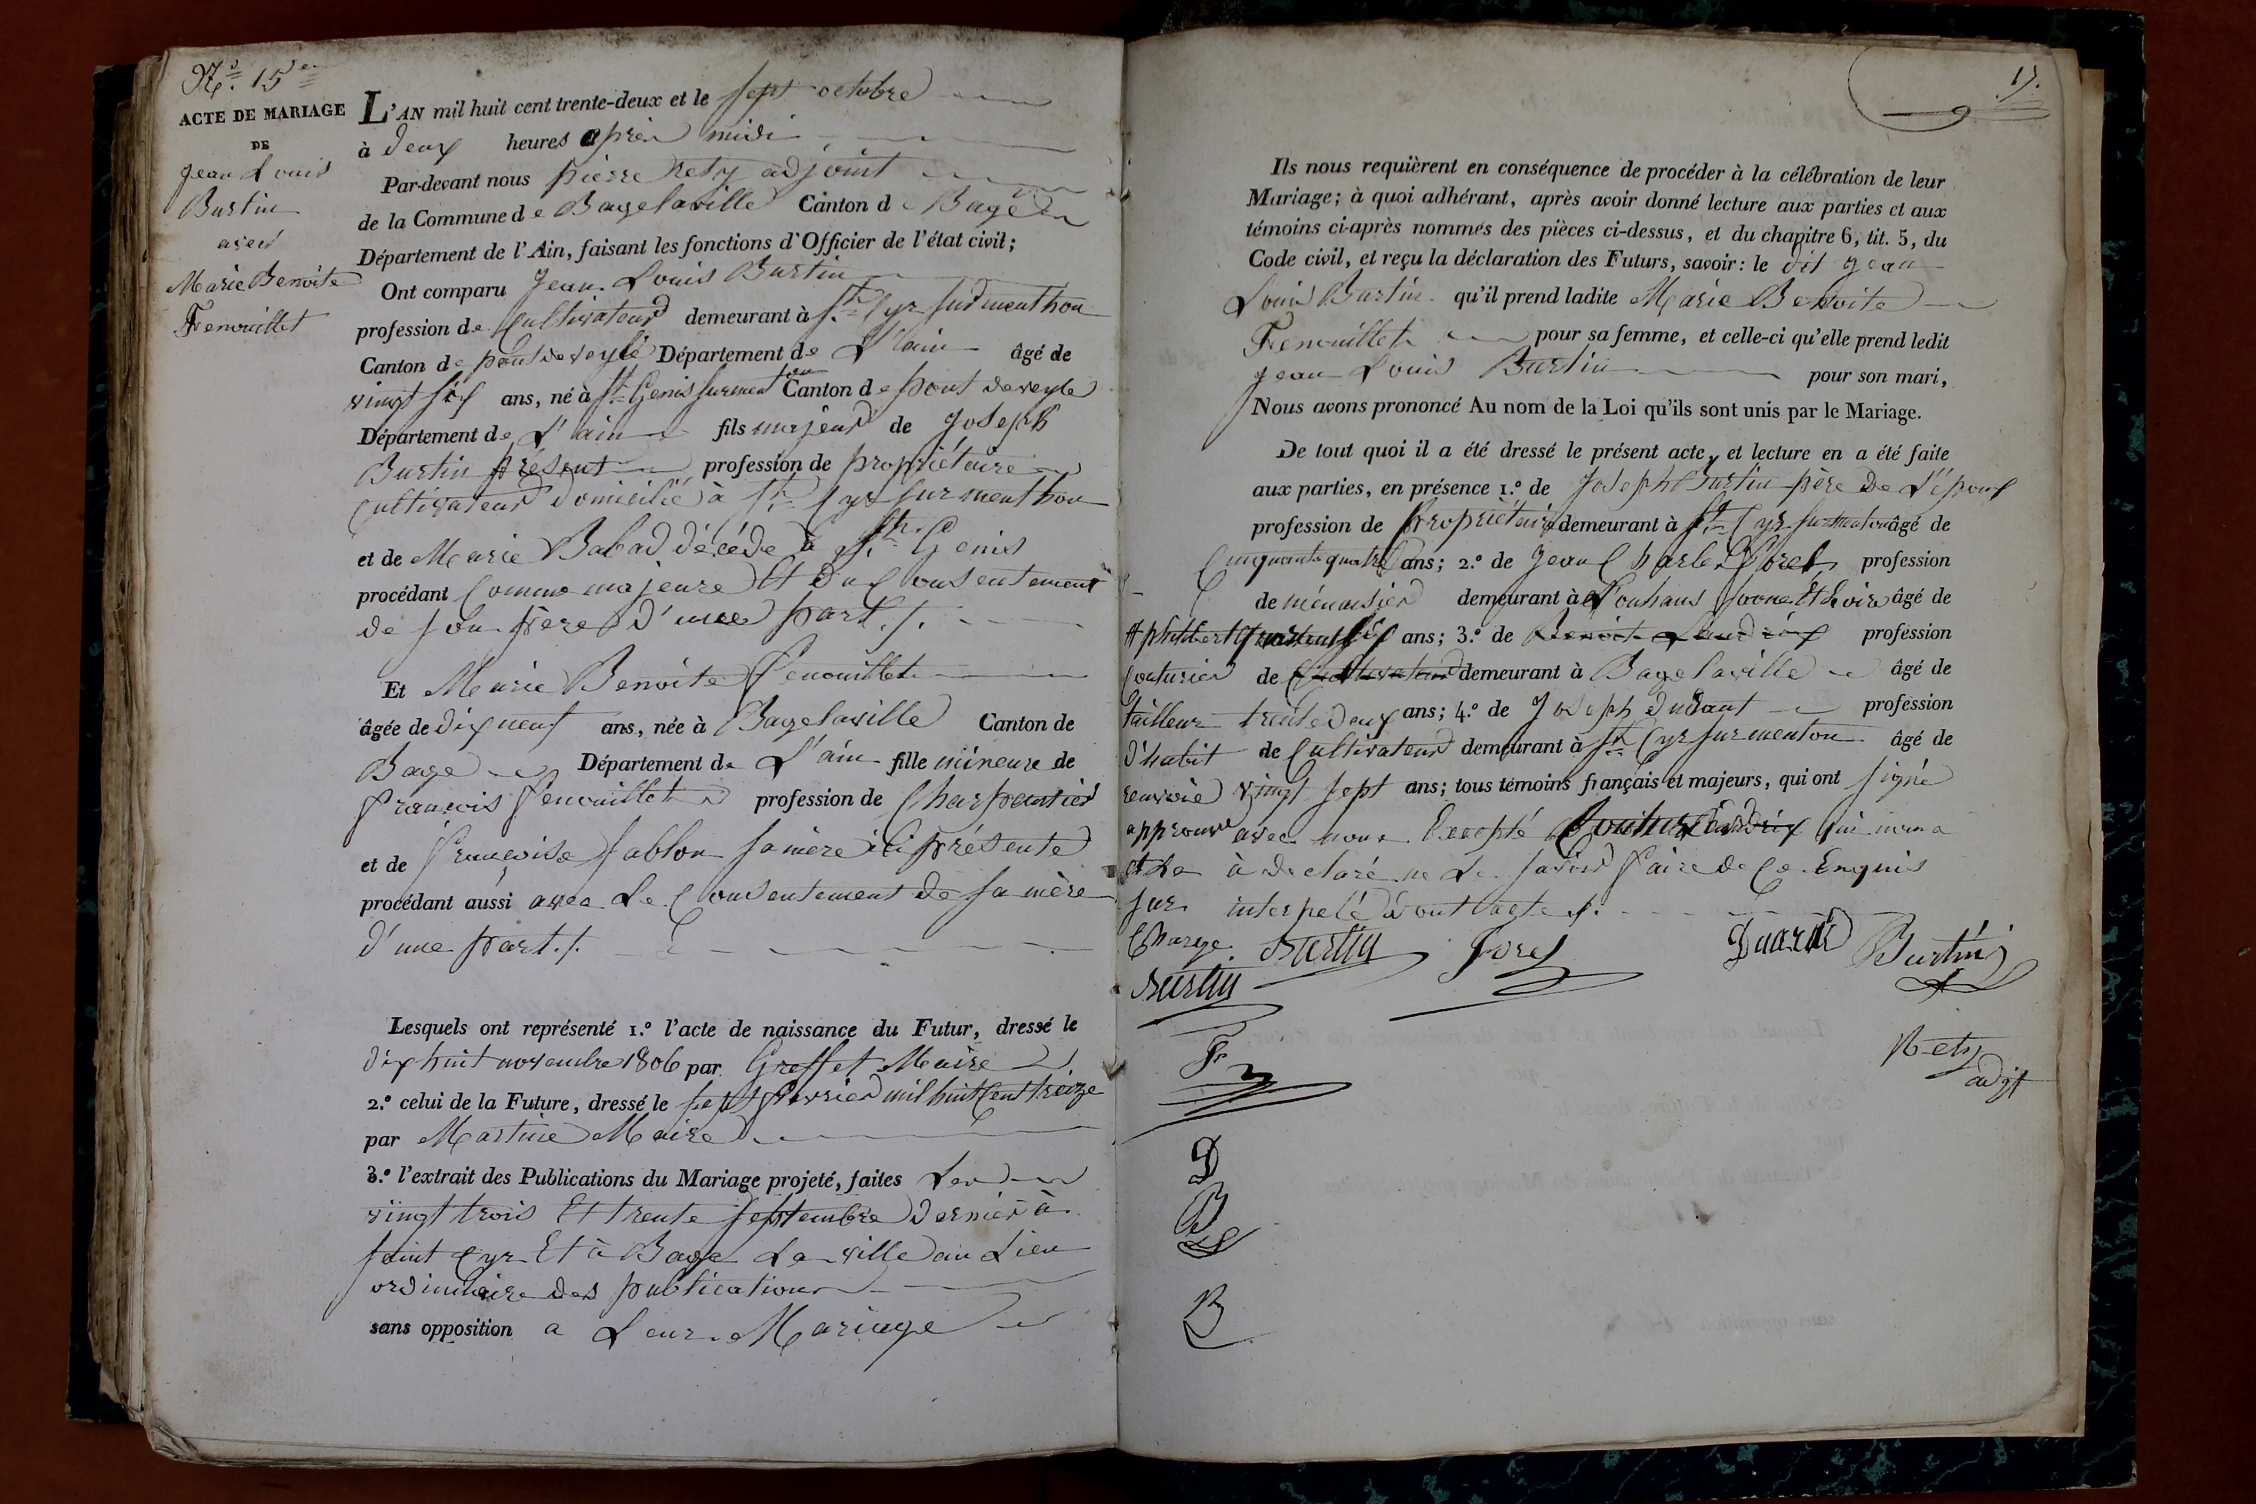 N.° 15
ACTE DE MARIAGE
DE
Jean Louis
Burtin
avec
Marie Benoite
Fenouillet
L'AN mil huit cent trente-deux et le sept octobre
à deux heures après midi
Par-devant nous pierre Rety adjoint
de la Commune de Bagelaville Canton de Bagé
Département de l'Ain, faisant les fonctions d'Officier de l'état civil;
Ont comparu Jean Louis Burtin
profession de Cultivateur demeurant à St Cyr surmenthon
Canton de pont de veyle Département de L'ain âgé de
vingt six ans, né à St Genis surmenton Canton de pont de veyle
Département de L'ain fils majeur de Joseph
Burtin présent profession de propriétaire
cultivateur domicilié à St Cyr sur menthon
et de Marie Babad décédé à St Genis
procédant Comme majeure Et du Consentement
de son père d'une part ./.
Et Marie Benoite Fenouillet
âgée de dix neuf ans, née à Bagelaville Canton de
Bage Département de L'ain fille mineure de
francois fenouillet profession de Charpentier
et de francoise Sablon sa mère ici présente
procédant aussi avec le Consentement de sa mère
d'une part ./.
Lesquels ont représenté 1.° l'acte de naissance du Futur, dressé le
dix huit novembre 1806 par Greffet Maire
2.° celui de la Future, dressé le sept fevrier mil huit Cent treize
par Martine Maire
3.° l'extrait des Publications du Mariage projeté, faites Les
vingt trois Et trente septembre dernier à
saint Cyr Et à Bage La ville au Lieu
ordinaire des publication
sans opposition a Leur Mariage
17.
Ils nous requièrent en conséquence de procéder à la célébration de leur
Mariage; à quoi adhérant, après avoir donné lecture aux parties et aux
témoins ci-après nommés des pièces ci-dessus, et du chapitre 6, tit. 5, du
Code civil, et reçu la déclaration des Futurs, savoir: le dit Jean
Louis Burtin qu'il prend ladite Marie Benoite
Fenouillet pour sa femme, et celle-ci qu'elle prend ledit
Jean Louis Burtin pour son mari,
Nous avons prononcé Au nom de la Loi qu'ils sont unis par le Mariage.
De tout quoi il a été dressé le présent acte, et lecture en a été faite
aux parties, en présence 1.° de Joseph Burtin père de L'époux
profession de propriétaire demeurant à St Cyr surmenton âgé de
Cinquante quatre ans; 2.° de Jean Charles forel profession
de ménuisier demeurant à Louhans Saone Et Loire âgé de
ans; 3.° de Benoit Landrix profession
de Cultivateur demeurant à Bagelaville âgé de
trente deux ans; 4.° de Joseph profession
de Cultivateur demeurant à St Cyr surmenton âgé de
vingt sept ans; tous témoins français et majeurs, qui ont signé
avec nous Excepté qui nous a
à declaré ne Le savoir faire de Ce Enquis
interpelé dont acte ./.
# philibert
Couturier
tailleur
d'habit
renvoie
approuvé
Et La
sur
Charge.
Burtin forel Burtin
Burtin
Rety
adjt
F
D
B
B